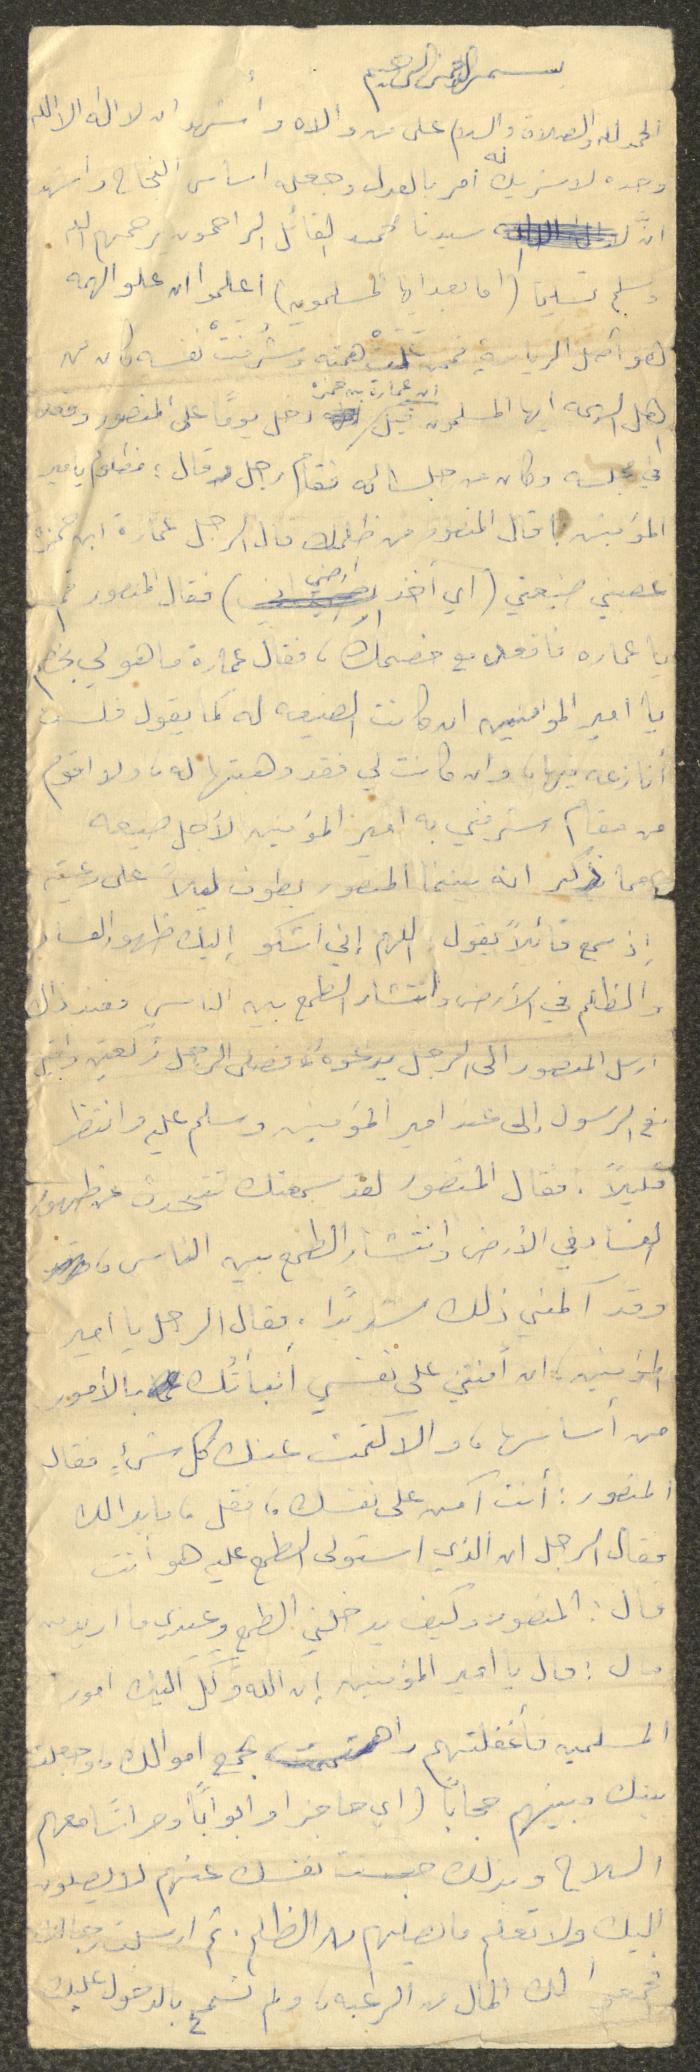 بسم الله الرحمن الرحيم
الحمد لله والصلاة والسلام على من والاه وأشهد ان لا اله الا الله
وحده لا شريك له أمر بالعدل وجعله اساس النجاح وأشهد
انَّ سيدنا محمد القائل الراحمون يرحمهم الله
وسلم تسليما (أما بعد ايها المسلمون) اعلموا ان علو الهمه
هو أصل الرياسة فمن عَلَتْ همته وشَرُفَتْ نفسه كان من
اهل الرحمه ايها المسلمون قيل / ان عمارة بن حمزه دخل يومًا على المنصور وقعد
في مجلسه وكان من جلسائه فقام رجل وقال : مظلوم يا امير
المؤمنين ! قال المنصور من ظلمك قال الرجل عمارة ابن حمزه
غصبني ضيعتي (أي أخذ أرضي) فقال المنصور قم
يا عماره فاقعد مع خصمك ، فقال عمارة ما هو لي بخصم
يا أمير المؤمنين ان كانت الضيعه له كما يقول فلست
أنازعه فيها ، وان كانت لي فقد وهبتها له ، ولا اقوم
من مقام شرفني به امير المؤمنين لأجل ضيعه
ومما يذكر انه بينما المنصور يطوف ليلاً على رعيته
إذ سمع قائلاً يقول : اللهم إني أشكو إليك ظهور الفساد
والظلم في الأرض وانتشار الطمع بين الناس فعند ذاك
ارسل المنصور الى الرجل يدعوه فصلى الرجل ركعتين واقبل
مع الرسول إلى عند امير المؤمنين وسلم عليه وانتظر
قليلاً . فقال المنصور لقد سمعتك تتحدث عن ظهور
الفساد في الأرض وانتشار الطمع بين الناس ،
وقد آلمني ذلك . فقال الرجل يا امير
المؤمنين ، ان أمنتني على نفسي أنبأتُك بالأمور
من أساسها ، والا كتمت عنك كل شيءٍ فقال
المنصور : أنت آمن على نفسك ، فقل ، ما بدا لك
فقال الرجل ان الذي استولى الطمع عليه هو أنت
قال : المنصور وكيف يدخلني الطمع وعندي ما اريد
قال : يا امير المؤمنين إن الله وَكَّلَ اليك امور
المسلمين فأغفلتهم واهتممت بجمع اموالك ، وجعلت
بينك وبينهم حجابًا (اي حاجزا وابوابًا وحراسًا معهم
السلاح وبذلك حبست نفسك عنهم لا يصلون
إليك ولا تعلم ما يصيبهم من الظلم . ثم ارسلت
لك المال من الرعيه ، ولم تسمح بالدخول عليك